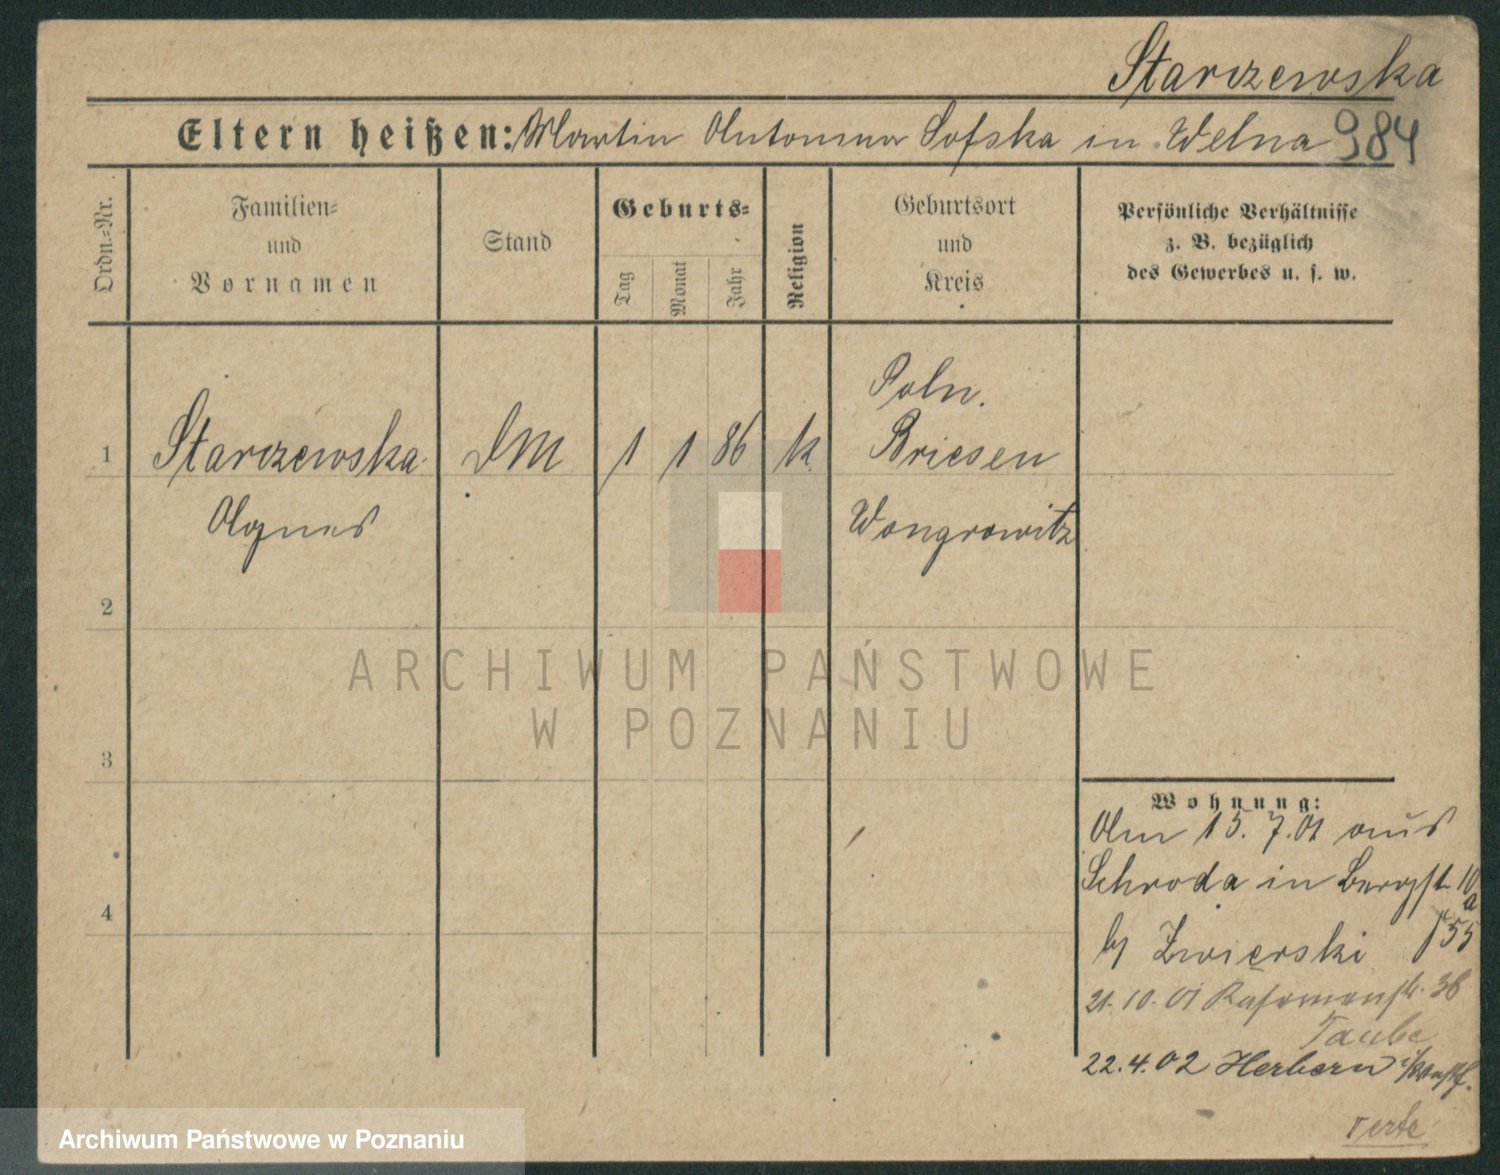 Starczewska
Eltern heißen: Martin Antonina Sofska in Welna 984
Ordn.=Nr.
Familien=
und
Vornamen
Stand
Geburts=
Tag
Monat
Jahr
Religion
Geburtsort
und
Kreis
Persönliche Verhältnisse
z. B. bezüglich
des Gewerbes u. s. w.
1 Starczewska DM 1 1 86 k Poln.
Briesen
Agnes Wongrowitz
2
3
4
ARCHIWUM PAŃSTWOWE
W POZNANIU
Wohnung:
Am 15.7.01 aus
Schroda in Bergst. 10
a
b/ Zwierski 55
21.10.01 38
Taube
22.4.02 Herbern i/Westf.
verte
Archiwum Państwowe w Poznaniu